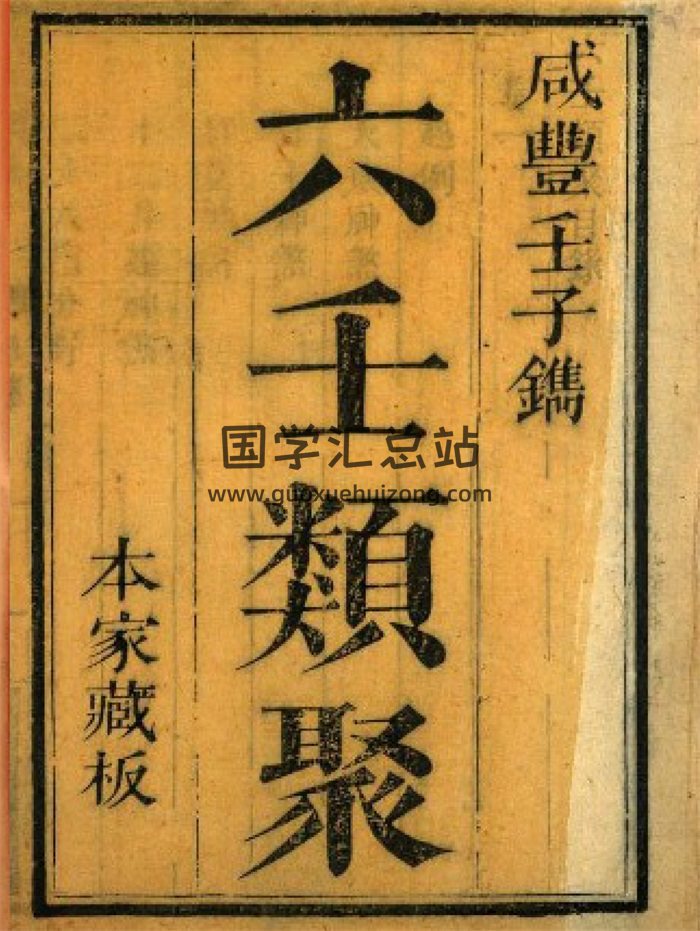 咸豐壬子鐫
六壬類聚
本家藏板
国学汇总站
www.guoxuehuizong.com